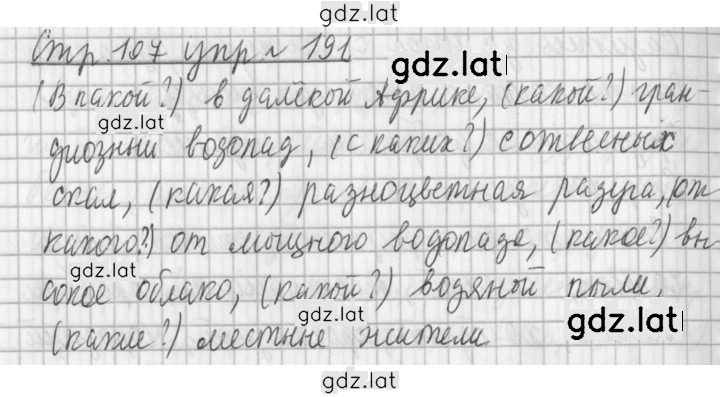 gdz.lat
Стр. 107 упр. № 191
gdz.lat
(В пакой?) в далёкой Африке, (какой?) гран-
gdz.lat
диозный возопад, (с каких?) с отвесных
скал, (какая?) разноцветная радуга, (от
какого?) от мощного водопада, (какое?) вы
gdz.lat
сокое облако, (какой?) водяной пыли,
gdz.lat
(какие?) местные жители
gdz.lat